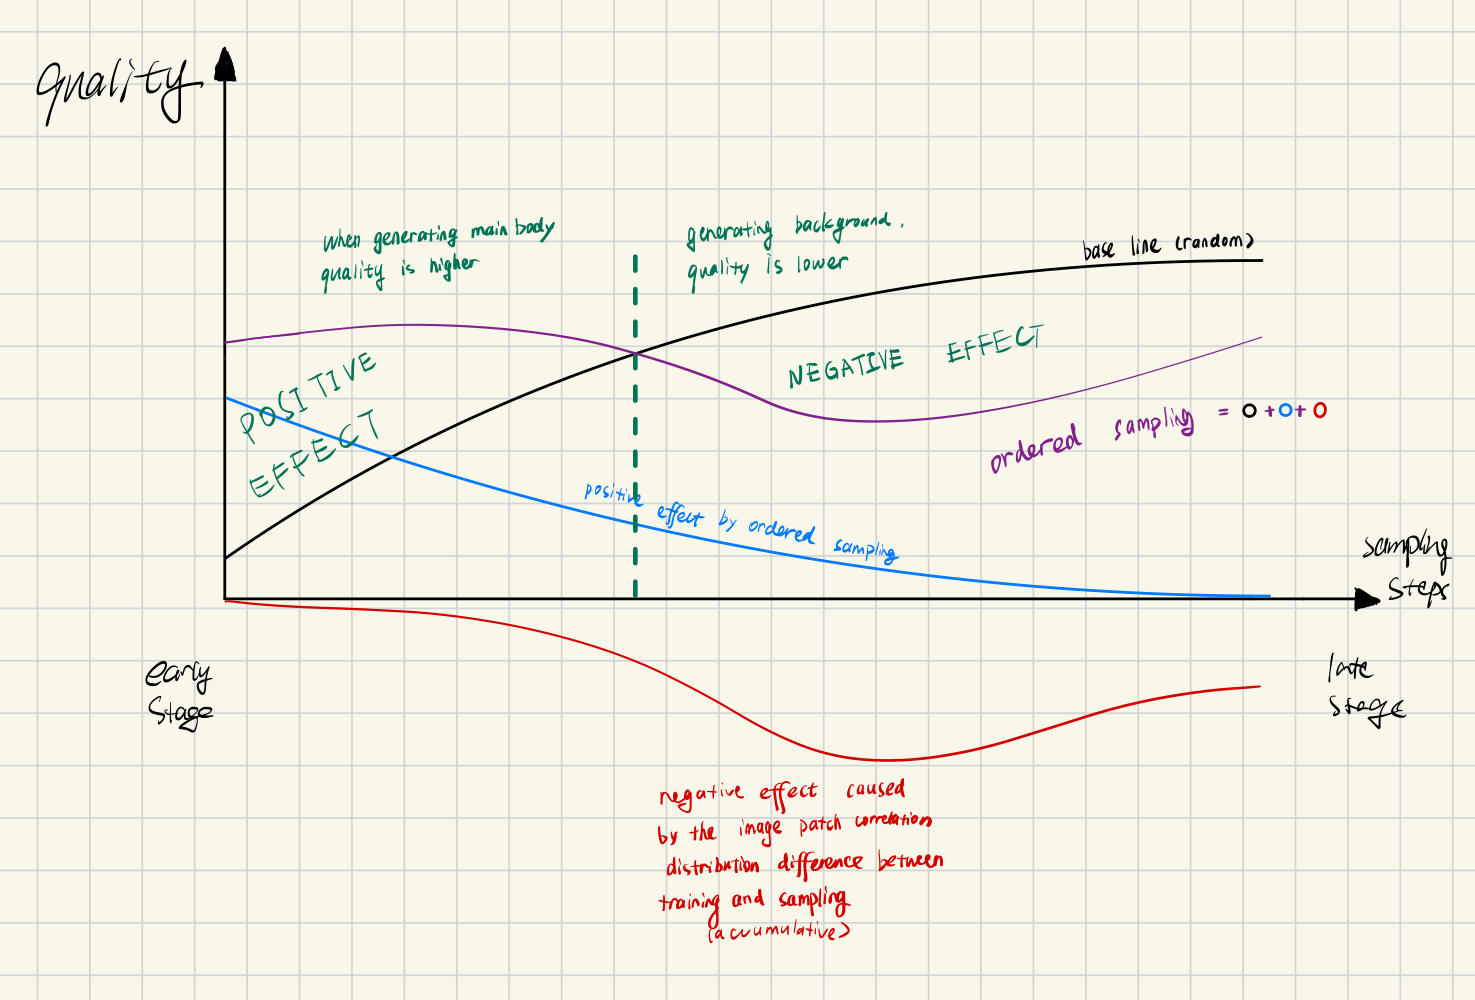 quality
when generating main body
quality is higher
generating background.
quality is lower
base line (random)
POSITIVE
EFFECT
NEGATIVE EFFECT
ordered sampling = O + O + O
positive effect by ordered sampling
sampling
steps
early
stage
late
stage
negative effect caused
by the image patch correlation
distribution difference between
training and sampling
(accumulative)